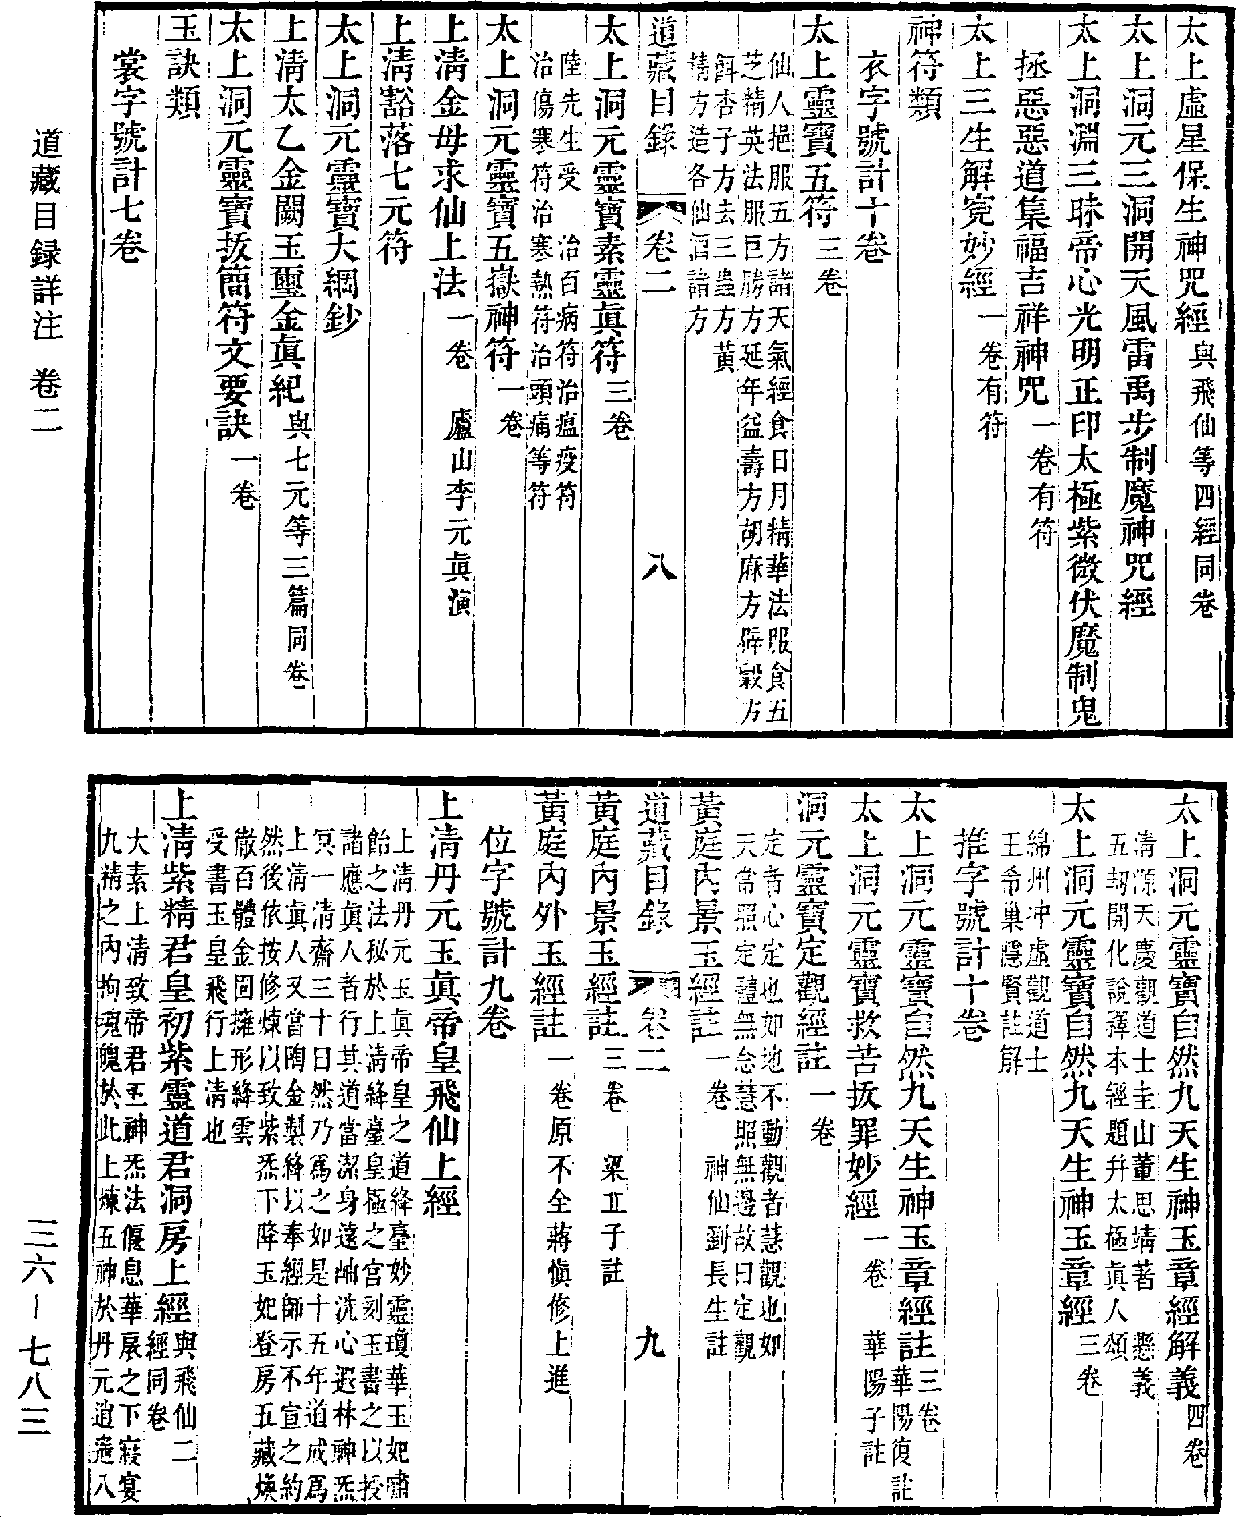 太上虛星保生神咒經 與飛仙等四經同卷
太上洞元三洞開天風雷禹步制魔神咒經
太上洞淵三昧帝心光明正印太極紫微伏魔制鬼
拯惡惡道集福吉祥神咒 一卷有符
太上三生解冤妙經 一卷有符
神符類
衣字號計十卷
太上靈寶五符 三卷
仙人挹服五方諸天氣經食日月精華法服食五
芝精英法服巨勝方延年益壽方胡麻方辟穀方
餌杏子方去三蟲方黃
精方造各仙酒諸方
道藏目錄 卷二 八
太上洞元靈寶素靈眞符 三卷
陸先生受 治百病符治瘟疫符
治傷寒符治寒熱符治頭痛等符
太上洞元靈寶五嶽神符 一卷
上清金母求仙上法 一卷 廬山李元眞演
上清豁落七元符
太上洞元靈寶大綱鈔
上清太乙金闕玉璽金眞紀 與七元等三篇同卷
太上洞元靈寶投簡符文要訣 一卷
玉訣類
裳字號計七卷
道藏目録詳注 卷二
太上洞元靈寶自然九天生神玉章經解義 四卷
清源天慶觀道士圭山董思靖著 懸義
五刼開化說釋本經題并太極眞人頌
太上洞元靈寶自然九天生神玉章經 三卷
綿州冲虛觀道士
王希巢隱賢註解
推字號計十卷
太上洞元靈寶自然九天生神玉章經註 三卷 華陽復註
太上洞元靈寶救苦拔罪妙經 一卷 華陽子註
洞元靈寶定觀經註 一卷
定者心定也如地不動觀者慧觀也如
天當照定體無念慧照無邊故曰定觀
黃庭內景玉經註 一卷 神仙劉長生註
道藏目錄 卷二 九
黃庭內景玉經註 三卷 梁丘子註
黃庭內外玉經註 一卷原不全蔣愼修上進
位字號計九卷
上清丹元玉眞帝皇飛仙上經
上清丹元玉眞帝皇之道絳臺妙靈瓊華玉妃嘯
飴之法秘於上清絳臺皇極之宮刻玉書之以授
諸應眞人者行其道當潔身遠岫洗心遐林神炁
冥一清齋三十日然乃爲之如是十五年道成爲
上清眞人又當陶金製絳以奉經師示不宣之約
然後依按修煉以致紫炁下降玉妃登房五藏煥
徹百體金固擁形絳雲
受書玉皇飛行上清也
上清紫精君皇初紫靈道君洞房上經 與飛仙二經同卷
大素上清致帝君五神炁法偃息華扆之下寢宴
九精之內拘魂魄於此上煉五神於丹元逍遙八
三六—七八三